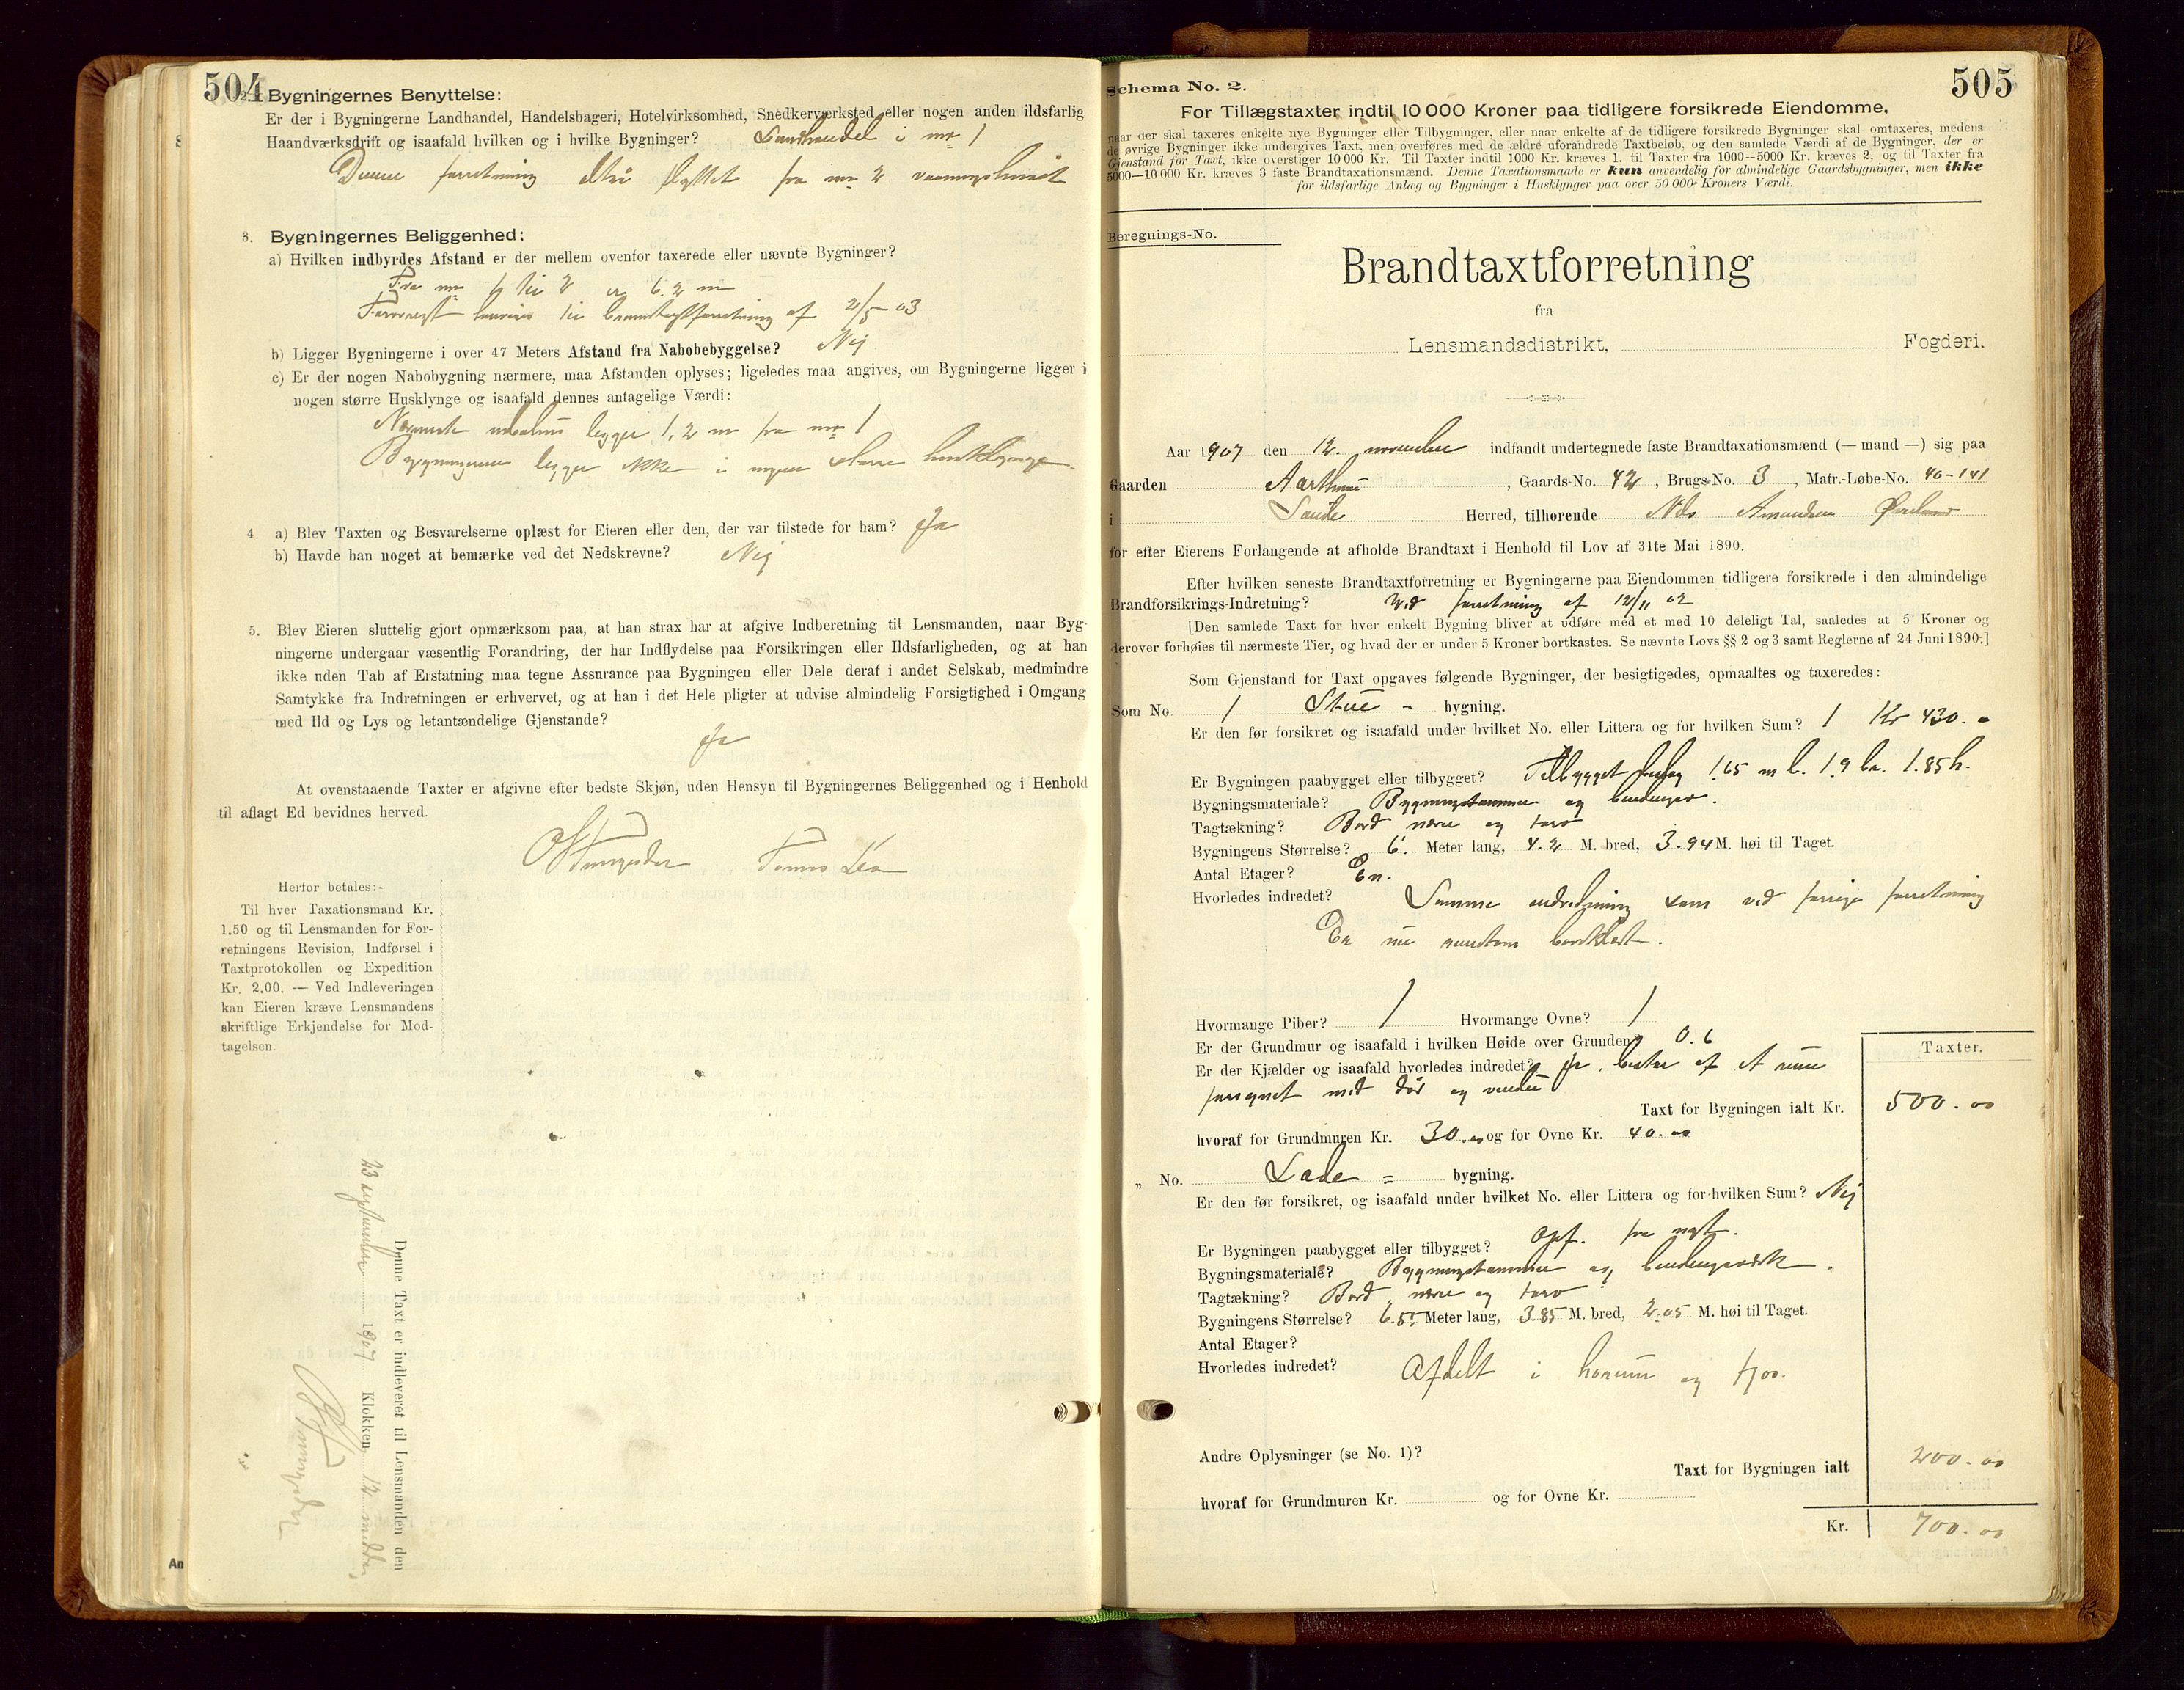 504
2. Bygningernes Benyttelse:
Er der i Bygningerne Landhandel, Handelsbageri, Hotelvirksomhed, Snedkerværksted eller nogen anden ildsfarlig
Haandværksdrift og isaafald hvilken og i hvilke Bygninger? Landhandel i no 1
Denne forretning altså flyttet fra no 2 vaaningshuset
3. Bygningernes Beliggenhed:
a) Hvilken indbyrdes Afstand er der mellem ovenfor taxerede eller nævnte Bygninger?
Fra no 1 til 2 er 6.2 m
Forøvrigt henvises til brandtaxtforretning af 2/5-03
b) Ligger Bygningerne i over 47 Meters Afstand fra Nabobebyggelse? Nej
c) Er der nogen Nabobygning nærmere, maa Afstanden oplyses; ligeledes maa angives, om Bygningerne ligger i
nogen større Husklynge og isaafald dennes antagelige Værdi:
Nærmeste ligger 1.2 m fra no 1
Bygningerne ligger ikke i nogen større husklynge.
4. a) Blev Taxten og Besvarelserne oplæst for Eieren eller den, der var tilstede for ham? Ja
b) Havde han noget at bemærke ved det Nedskrevne? Nej
5. Blev Eieren sluttelig gjort opmærksom paa, at han strax har at afgive Indberetning til Lensmanden, naar Byg-
ningerne undergaar væsentlig Forandring, der har Indflydelse paa Forsikringen eller Ildsfarligheden, og at han
ikke uden Tab af Erstatning maa tegne Assurance paa Bygningen eller Dele deraf i andet Selskab, medmindre
Samtykke fra Indretningen er erhvervet, og at han i det Hele pligter at udvise almindelig Forsigtighed i Omgang
med Ild og Lys og letantændelige Gjenstande?
Ja
At ovenstaaende Taxter er afgivne efter bedste Skjøn, uden Hensyn til Bygningernes Beliggenhed og i Henhold
til aflagt Ed bevidnes herved.
Tomas Lea
Herfor betales:-
Til hver Taxationsmand Kr.
1.50 og til Lensmanden for For-
retningens Revision, Indførsel i
Taxtprotokollen og Expedition
Kr. 2.00. — Ved Indleveringen
kan Eieren kræve Lensmandens
skriftlige Erkjendelse for Mod-
tagelsen.
Denne Taxt er indleveret til Lensmanden den
23 september 1907 Klokken 12 middag
Schema No. 2.
505
For Tillægstaxter indtil 10 000 Kroner paa tidligere forsikrede Eiendomme,
naar der skal taxeres enkelte nye Bygninger eller Tilbygninger, eller naar enkelte af de tidligere forsikrede Bygninger skal omtaxeres, medens
de øvrige Bygninger ikke undergives Taxt, men overføres med de ældre uforandrede Taxtbeløb, og den samlede Værdi af de Bygninger, der er
Gjenstand for Taxt, ikke overstiger 10 000 Kr. Til Taxter indtil 1000 Kr. kræves 1, til Taxter fra 1000—5000 Kr. kræves 2, og til Taxter fra
5000—10 000 Kr. kræves 3 faste Brandtaxationsmænd. Denne Taxationsmaade er kun anvendelig for almindelige Gaardsbygninger, men ikke
for ildsfarlige Anlæg og Bygninger i Husklynger paa over 50 000 Kroners Værdi.
Beregnings-No.
Brandtaxtforretning
fra
Lensmandsdistrikt, Fogderi.
Aar 1907 den 12. november indfandt undertegnede faste Brandtaxationsmænd (— mand —) sig paa
Gaarden Aarthun, Gaards-No. 42, Brugs-No. 3, Matr.-Løbe-No. 40-141
i Sande Herred, tilhørende Nils Amundsen Øveland
for efter Eierens Forlangende at afholde Brandtaxt i Henhold til Lov af 31te Mai 1890.
Efter hvilken seneste Brandtaxtforretning er Bygningerne paa Eiendommen tidligere forsikrede i den almindelige
Brandforsikrings-Indretning? Ved forretning af 12/11 02
[Den samlede Taxt for hver enkelt Bygning bliver at udføre med et med 10 deleligt Tal, saaledes at 5 Kroner og
derover forhøies til nærmeste Tier, og hvad der er under 5 Kroner bortkastes. Se nævnte Lovs §§ 2 og 3 samt Reglerne af 24 Juni 1890.]
Som Gjenstand for Taxt opgaves følgende Bygninger, der besigtigedes, opmaaltes og taxeredes:
Som No. 1 Stue - bygning.
Er den før forsikret og isaafald under hvilket No. eller Littera og for hvilken Sum? 1 Kr 430.
Er Bygningen paabygget eller tilbygget? Tilbygget 1.65 m l. 1.9 br. 1.85 h.
Bygningsmateriale? Bygningstømmer og bindingsv.
Tagtækning? Bord næver og torv
Bygningens Størrelse? 6. Meter lang, 4.2 M. bred, 3.94 M. høi til Taget.
Antal Etager? En.
Hvorledes indredet? Samme indredning som ved forrige forretning
Er nu rundtom bordklædt.
Hvormange Piber? 1 Hvormange Ovne? 1
Er der Grundmur og isaafald i hvilken Høide over Grunden? 0.6
Er der Kjælder og isaafald hvorledes indredet? Ja, bestar af et rum
forsynet med dør og vindu
Taxter.
Taxt for Bygningen ialt Kr. 500.00
hvoraf for Grundmuren Kr. 30.00 og for Ovne Kr. 40.00
„ No. Lade = bygning.
Er den før forsikret, og isaafald under hvilket No. eller Littera og for hvilken Sum? Nej
Er Bygningen paabygget eller tilbygget? Opf. fra nyt.
Bygningsmateriale? Bygningstømmer og bindingsværk.
Tagtækning? Bord, næver og torv
Bygningens Størrelse? 6.57 Meter lang, 3.85 M. bred, 2.05 M. høi til Taget.
Antal Etager?
Hvorledes indredet? Afdelt i hørum og fjøs.
Andre Oplysninger (se No. 1)?
Taxt for Bygningen ialt 200.00
hvoraf for Grundmuren Kr. og for Ovne Kr.
Kr. 700.00